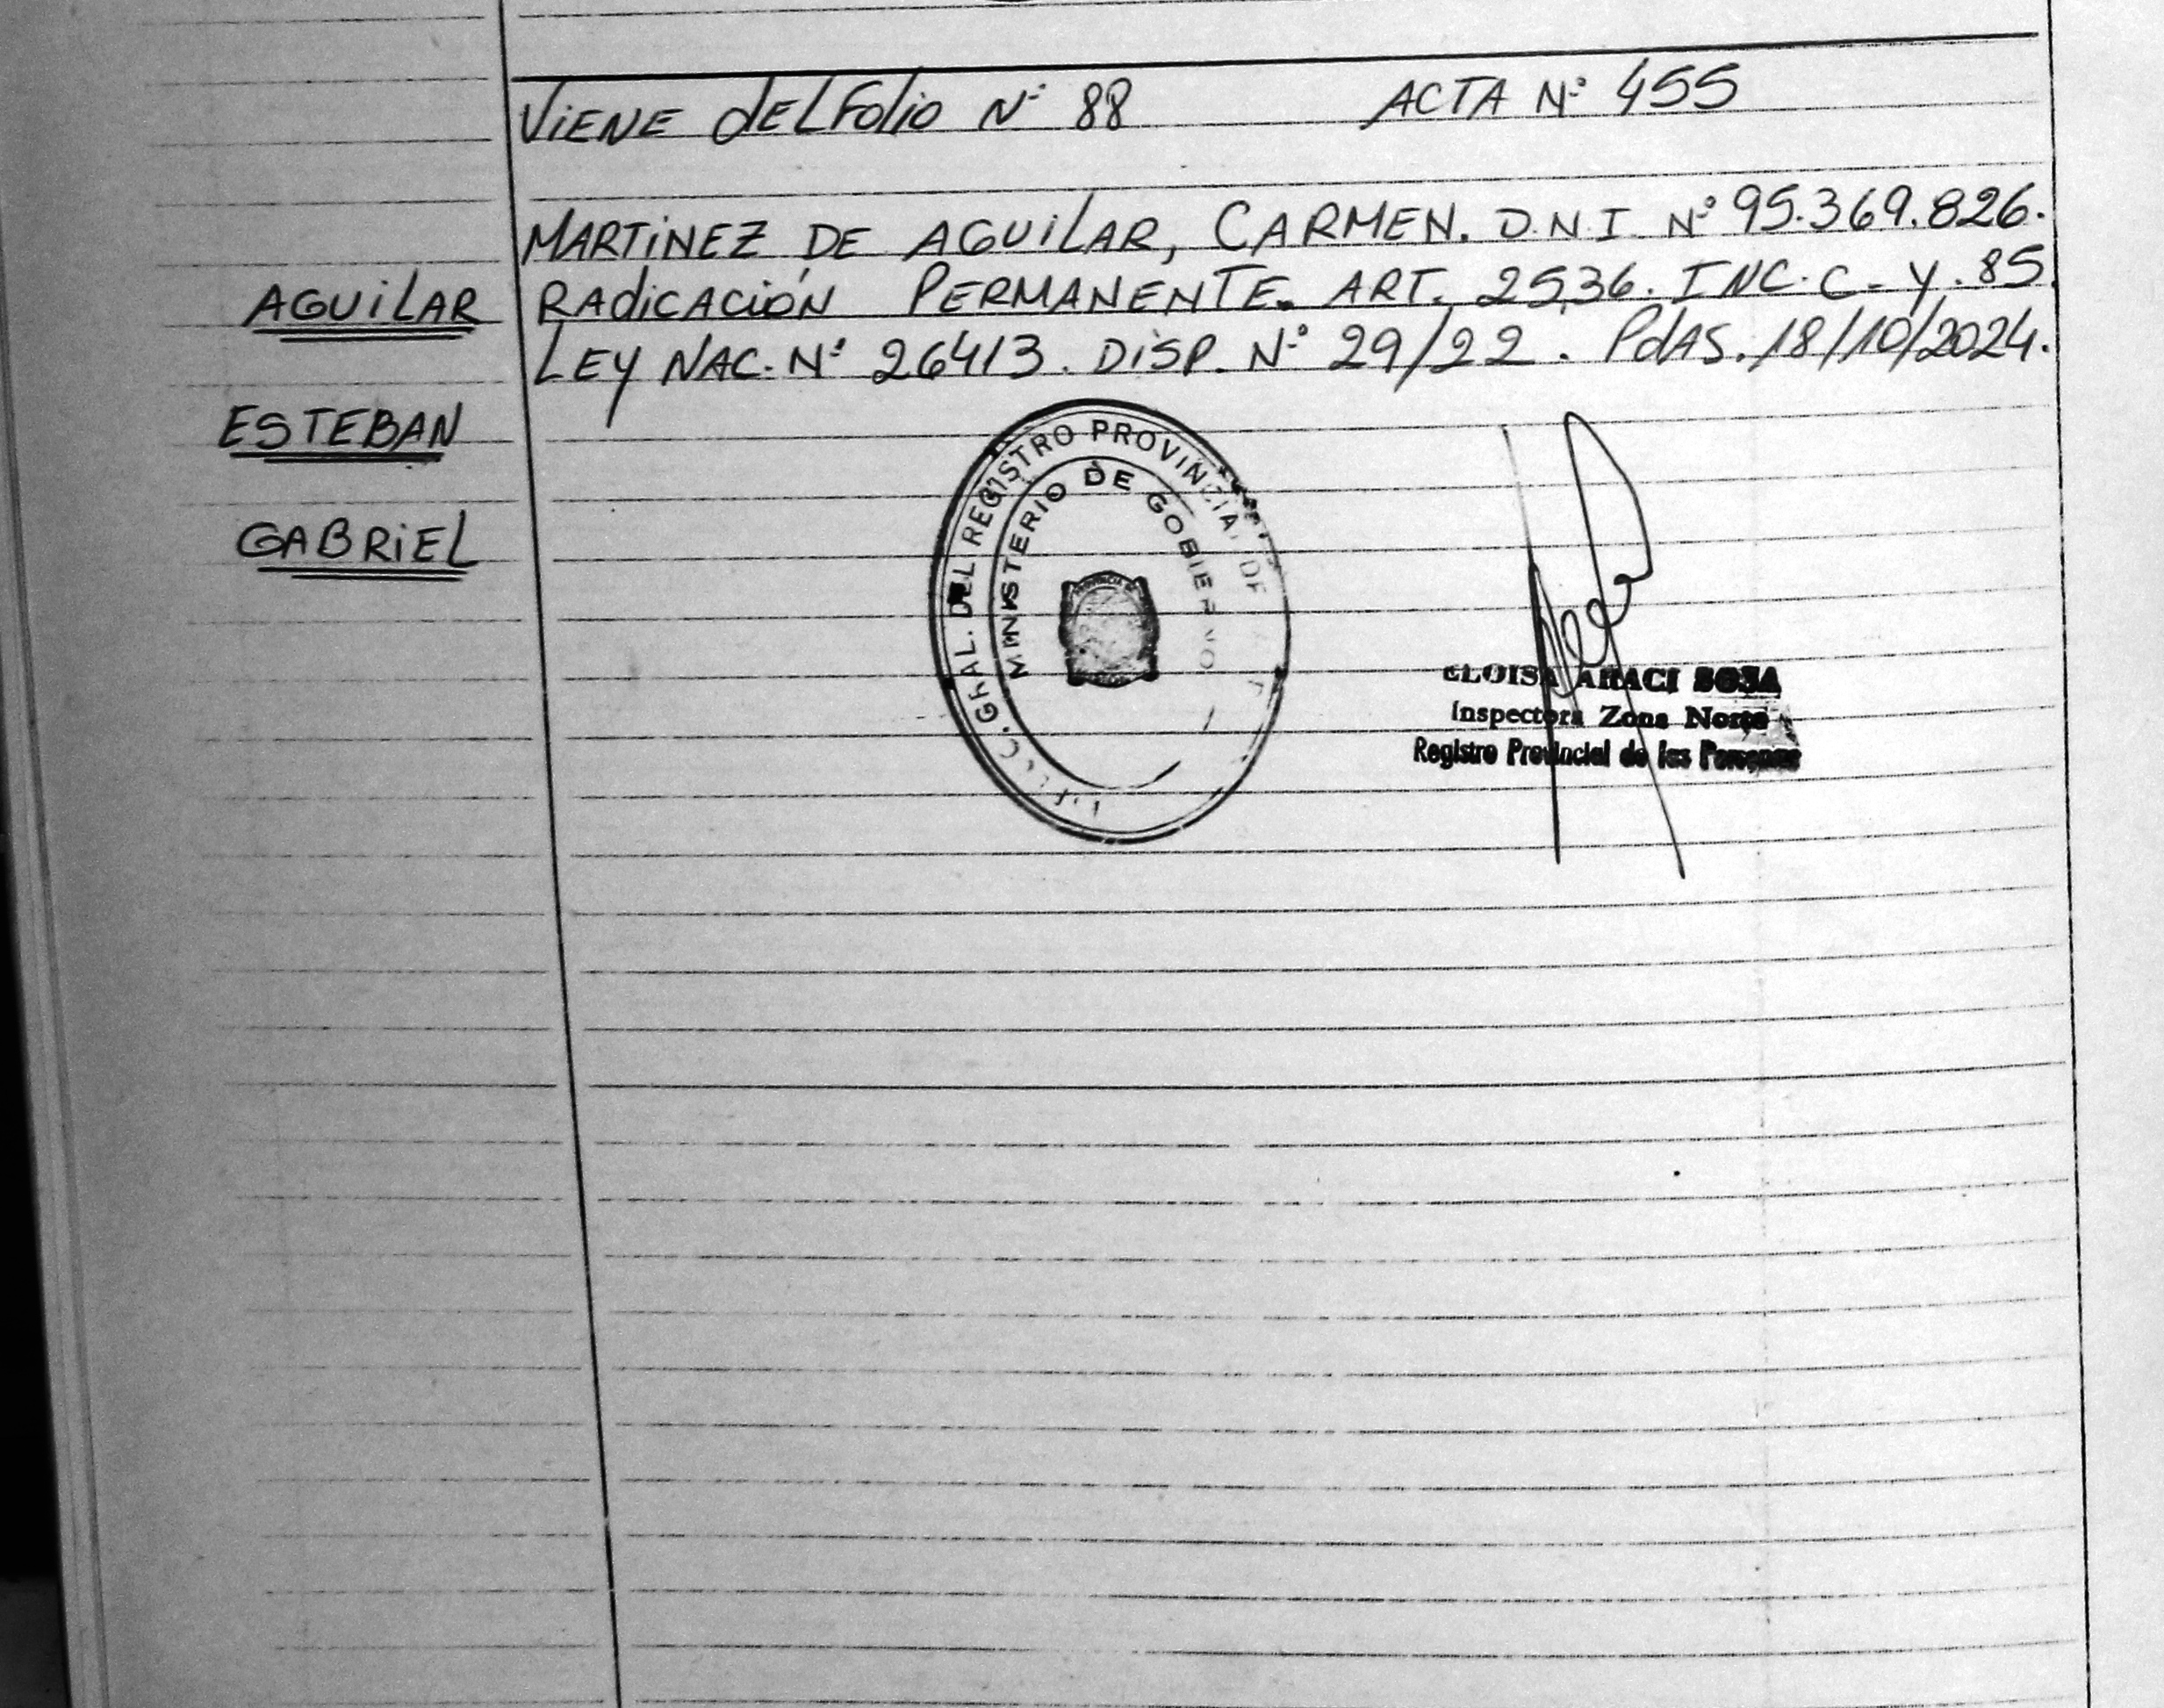 ViENE dEL FOlio Nº 88 ACTA Nº 455
MARTiNEZ DE AGUiLAR, CARMEN. D.N.I. Nº 95.369.826.
AGUiLAR
RAdicACióN PERMANENTE. ART. 25,36. INC. C- Y. 85.
LEY NAC. Nº 26413. DiSP. Nº 29/22. PdAS. 18/10/2024.
ESTEBAN
GABRiEL
GRAL. DEL REGISTRO PROVINZIAL DE
MINISTERIO DE GOBIERNO
ELOISA ARACI SOSA
Inspectora Zona Norte
Registro Provincial de las Personas